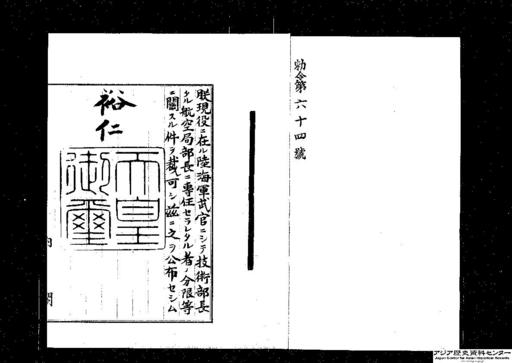 勅令第六十四號
朕現役ニ在ル陸海軍武官ニシテ技術部長
タル航空局部長ニ專任セラレタル者ノ分限等
ニ關スル件ヲ裁可シ茲ニ之ヲ公布セシム
裕仁
天皇
御璽
内閣
アジア歴史資料センター
Japan Center for Asian Historical Records